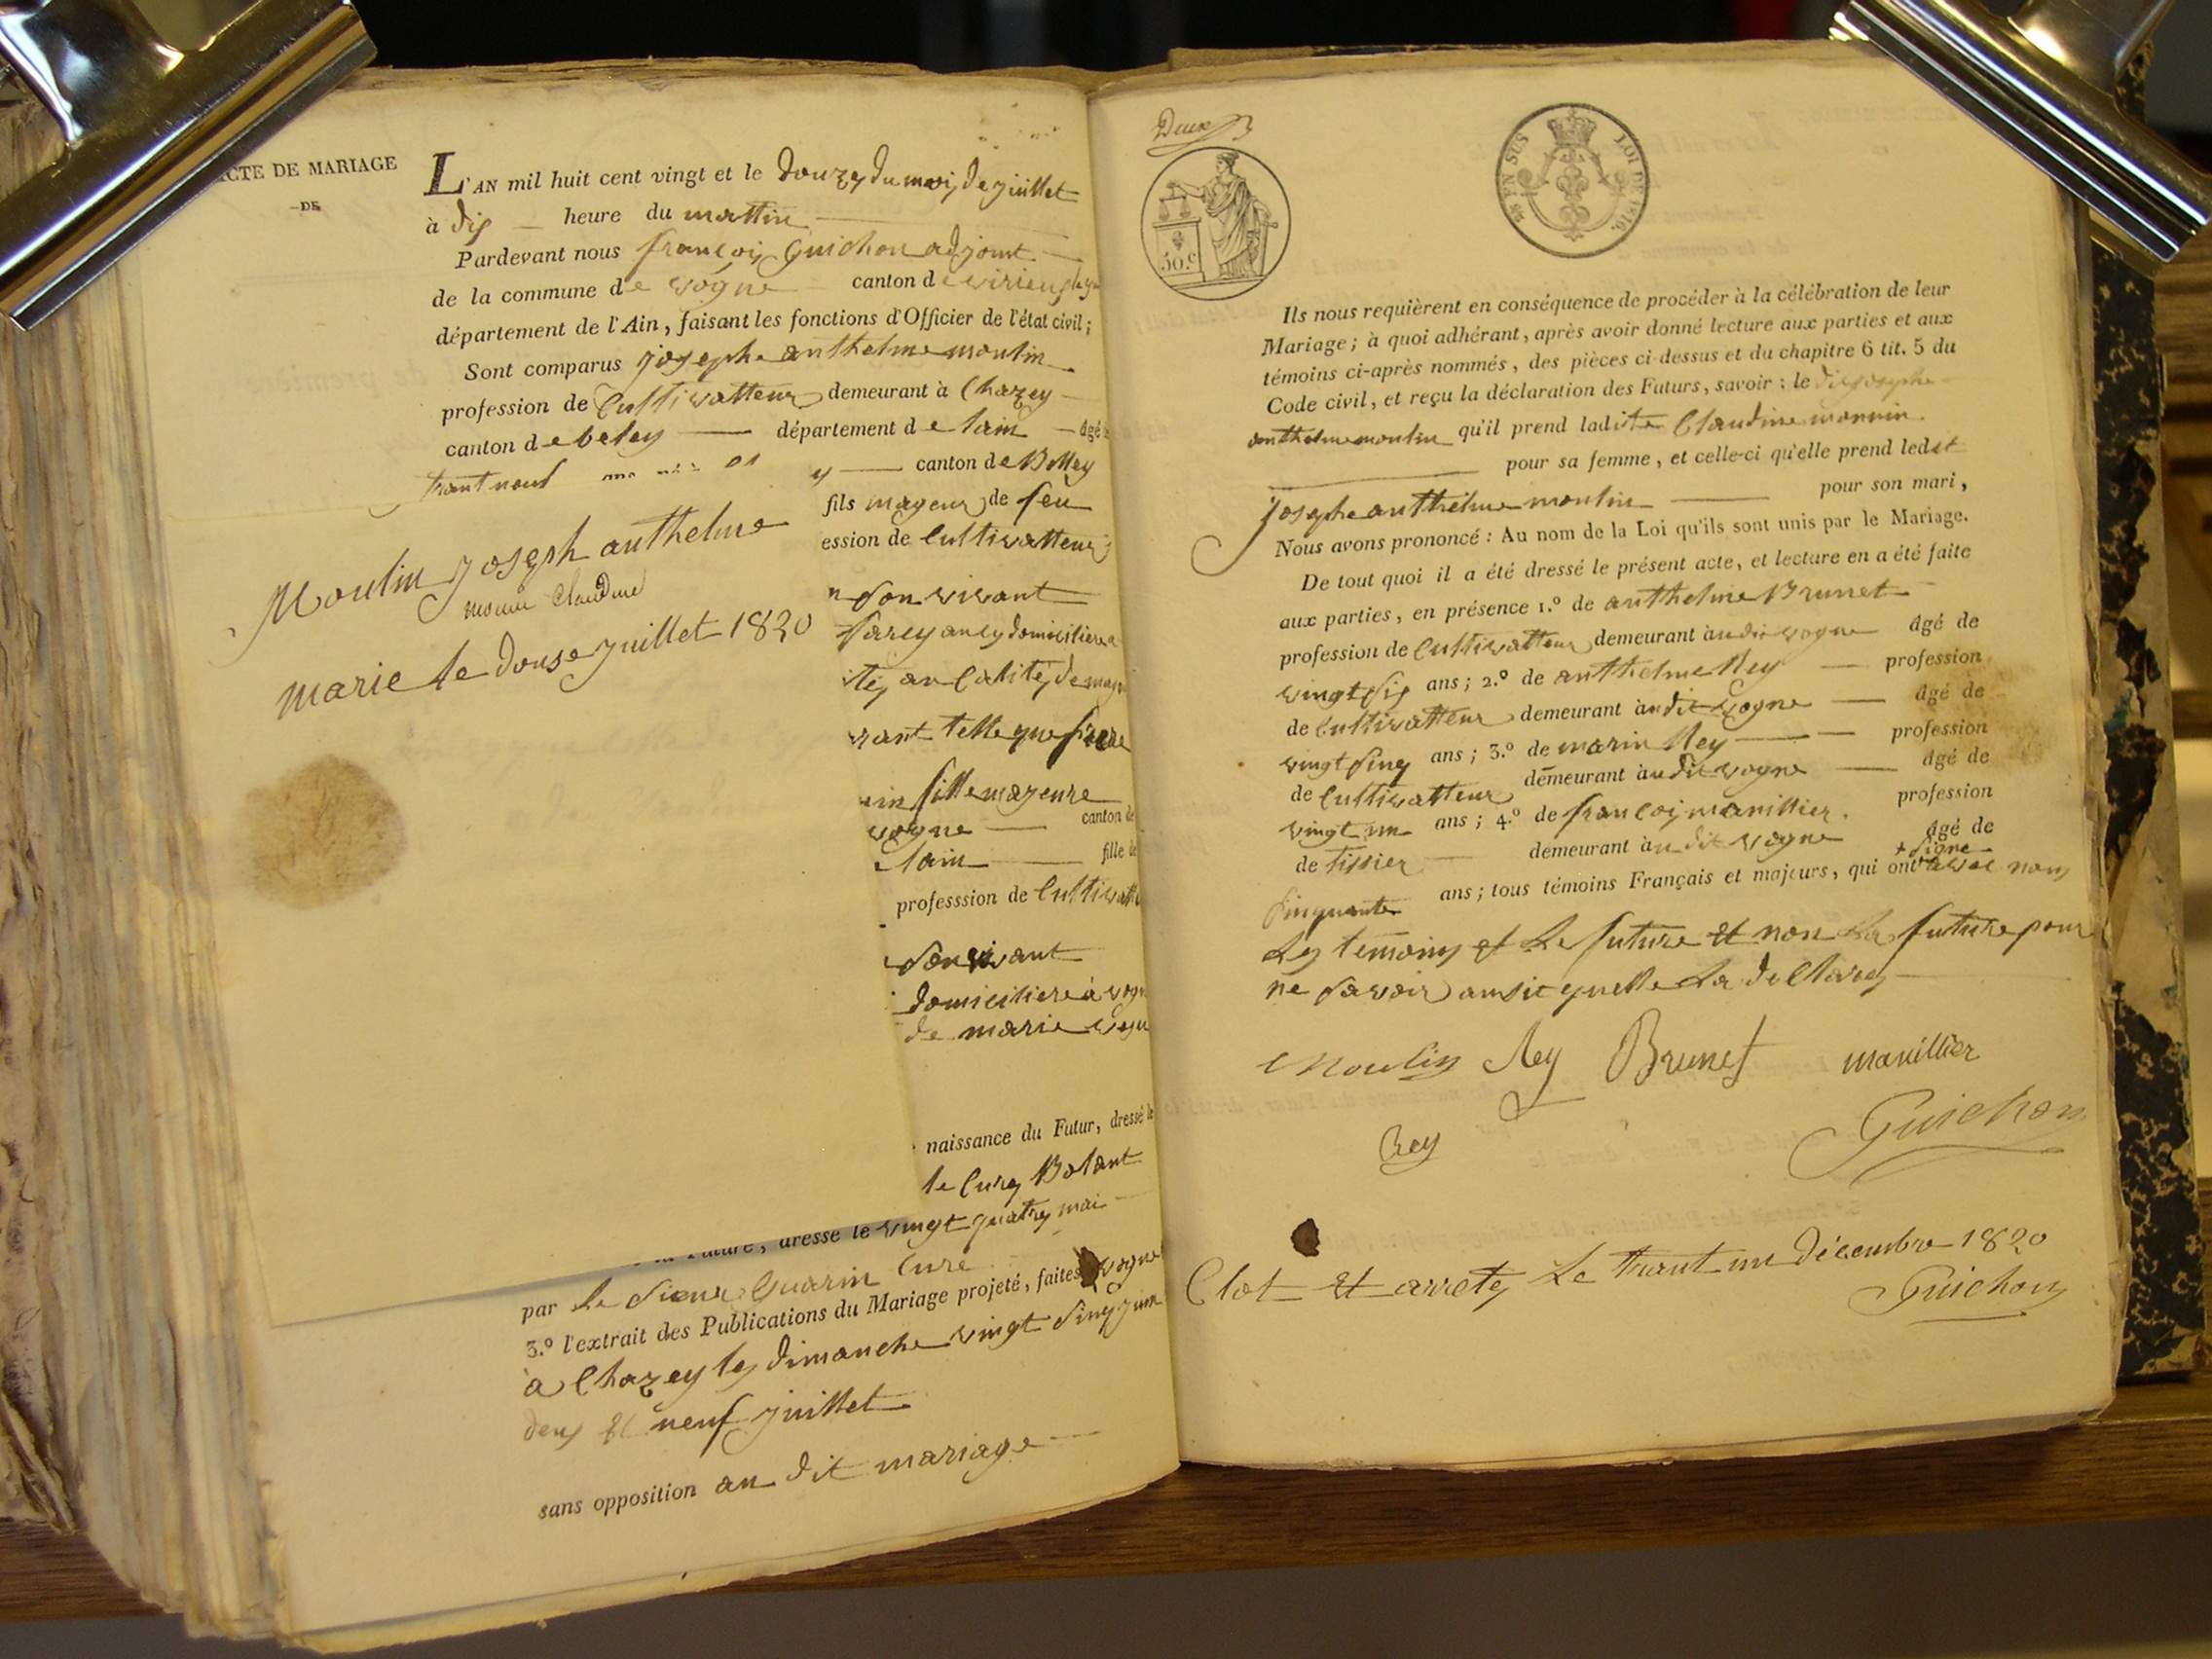 ACTE DE MARIAGE
-DE
L'AN mil huit cent vingt et le douze du mois de juillet
à dix heure du mattin
Pardevant nous françois Guichon adjoint
de la commune de vogne canton de virieu
département de l'Ain, faisant les fonctions d'Officier de l'état civil;
Sont comparus josephe anthelme moulin
profession de Cultivatteur demeurant à Chazey
canton de beley département de lain âgé
trant neuf
y canton de Belley
fils mageur de feu
ession de Cultivatteur
n son vivant
domiciliere a
vant telle que
in fille mageure
vogne canton de
lain fille de
professsion de Cultivatt
son vivant
domiciliere à vogn
de marie
naissance du Futur, dressé le
le Cure Bolant
Future, dressé le vingt quatre mai
par le sieur Guarin Cure
3.° l'extrait des Publications du Mariage projeté, faites a vogne
a Chazey les dimanche vingt sinq juin
deux et neuf juillet
sans opposition au dit mariage
Moulin joseph anthelme
monin Claudine
marie le douse juillet 1820
Deux
50.c
EN SUS
LOI DE 1816.
Ils nous requièrent en conséquence de procéder à la célébration de leur
Mariage; à quoi adhérant, après avoir donné lecture aux parties et aux
témoins ci-après nommés, des pièces ci-dessus et du chapitre 6 tit. 5 du
Code civil, et reçu la déclaration des Futurs, savoir: le dit josephe
anthelme moulin qu'il prend ladite Claudine monnin
pour sa femme, et celle-ci qu'elle prend ledit
josephe anthelme moulin pour son mari,
Nous avons prononcé: Au nom de la Loi qu'ils sont unis par le Mariage.
De tout quoi il a été dressé le présent acte, et lecture en a été faite
aux parties, en présence 1.° de anthelme Brunet
profession de Cultivatteur demeurant à audit vogne âgé de
vingt six ans; 2.° de anthelme Rey profession
de Cultivatteur demeurant à audit vogne âgé de
vingt sinq ans; 3.° de marin Rey profession
de Cultivatteur demeurant à audit vogne âgé de
vingt un ans; 4.° de françois manillier profession
de tissier demeurant à audit vogne âgé de
+ signe
sinquante ans; tous témoins Français et majeurs, qui ont + avec nous
les temoins et le future et non la future pour
ne savoir ansit quelle la declarez
Moulin Rey Brunet manillier
Rey Guichon
Clot et arrete le trant un décembre 1820
Guichon